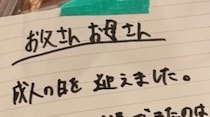 お父さん お母さん
成人の日を 迎えました。
できたのは